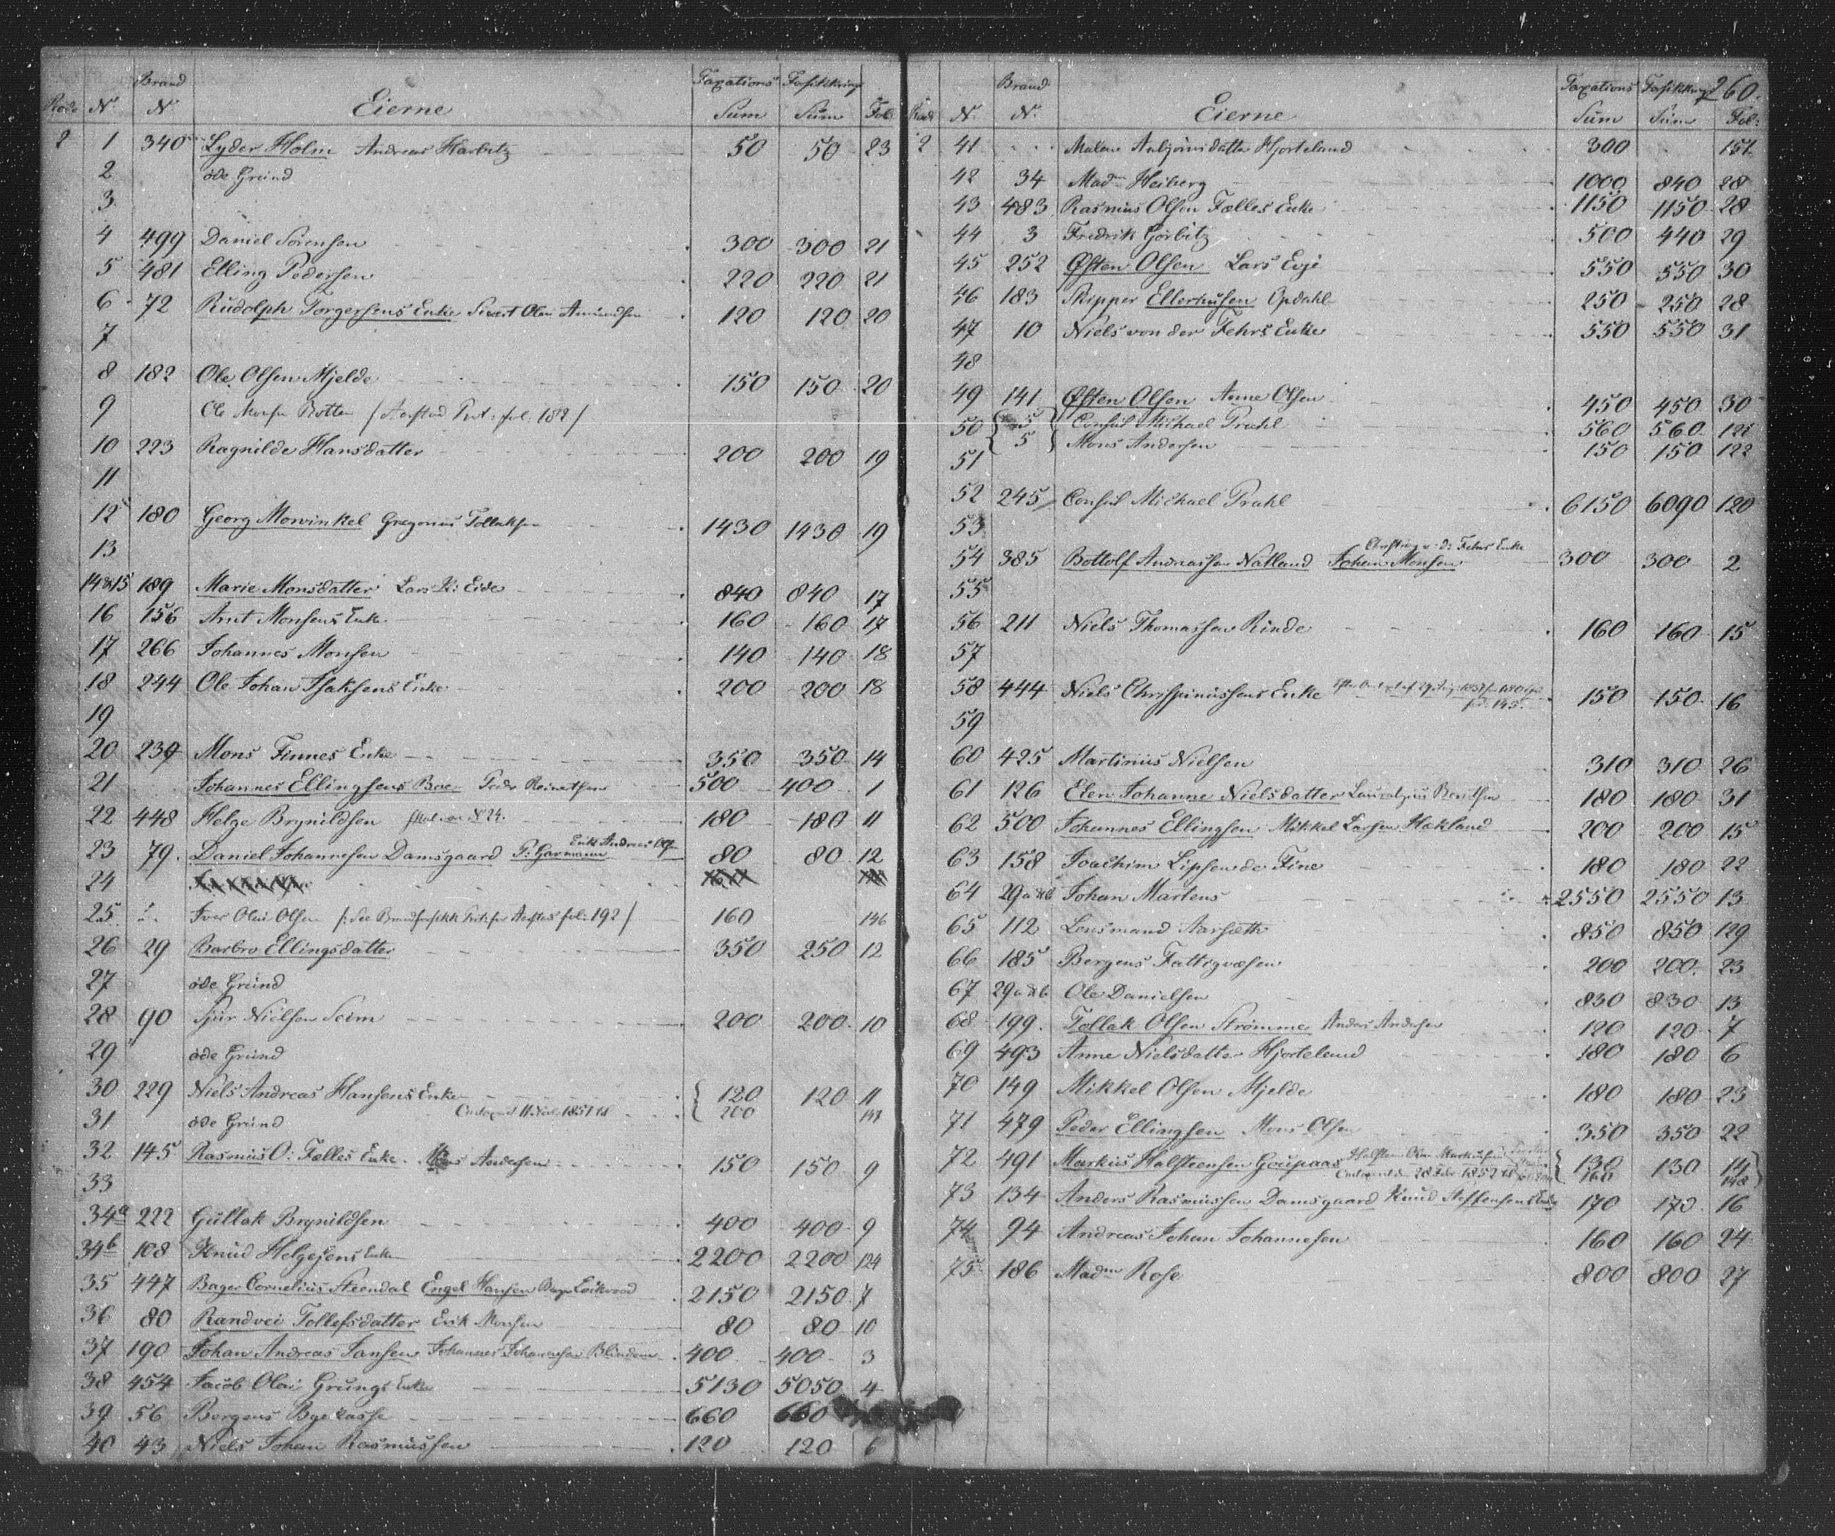 Rode N. Brand N Eierne Taxations Sum Forsikkrings Sum Fol.
2 1 340 Lyder Holm Andreas Harbitz 50 50 23
2 öde Grund
3
4 499 Daniel Sörensen 300 300 21
5 481 Elling Pedersen 220 220 21
6 72 Rudolph Torgersens Enke Sivert Olai Amundsen 120 120 20
7
8 182 Ole Olsen Mjelde 150 150 20
9 Ole Monsen / Aarstad Prot. fol. 182 /
10 223 Ragnilde Hansdatter 200 200 19
11
12 180 Georg Mowinkel Gregorius Tollaksen 1430 1430 19
13
14&15 189 Marie Monsdatter Lars K: Eide 840 840 17
16 156 Arnt Monsens Enke 160 160 17
17 266 Johannes Monsen 140 140 18
18 244 Ole Johan Isaksens Enke 200 200 18
19
20 239 Mons Finnes Enke 350 350 14
21 Johannes Ellingsens Boe Peder Reinertsen 500 400 1
22 448 Helge Brynildsen No 24. 180 180 11
23 79. Daniel Johannesen Damsgaard P: Garmann Enke Andreas Ols 80 80 12
24
25 Iver Olai Olsen /: See Brandforsikk Prot. for Aarstad fol: 192 / 160 146
26 29 Barbro Ellingsdatter 350 250 12
27 öde Grund
28 90 Sjur Nielsen Seim 200 200 10
29 öde Grund
30 229 Niels Andreas Hansens Enke 120 120 11
31 öde Grund Omtaxert 11 1851 200 143
32 145 Rasmus O: Fælles Enke. Mons Andersen 150 150 9
33
34a 222 Gullak Brynildsen 400 400 9
34b 108 Knud Helgesens Enke 2200 2200 124
35 447 Bager Cornelius Steendal Engel Hansen Bager 2150 2150 7
36 80 Randvei Tollefsdatter Erik Monsen 80 80 10
37 190 Johan Andreas Jansen Johannes Johannesen Blindem 400 400 3
38 454 Jacob Olai Grungs Enke 5130 5050 4
39 56 Bergens Byekasse 660 660
40 43 Niels Johan Rasmussen 120 120 6
260.
Rode N. Brand N. Eierne Taxations Sum Forsikkrings Sum Fol:
2 41 Malene Anbjörnsdatter Hjorteland 300 151
42 34 Madm Heiberg 1000 840 28
43 483 Rasmus Olsen Fælles Enke 1150 1150 28
44 3 Fredrik Görbitz 500 440 29
45 252 Østen Olsen Lars Evje 550 550 30
46 183 Skipper Ellerhusen Opdahl 250 250 28
47 10 Niels von der Fehrs Enke 550 550 31
48
49 141 Østen Olsen Anne Olsen 450 450 30
50 5 Consul Michael Prahl 560 560 121
5 Mons Andersen 150 150 122
51
52 245 Consul Michael Prahl 6150 6090 120
53
Christine v: d: Fehrs Enke
54 385 Bottolf Andreassen Natland Johan Monsen 300 300 2
55
56 211 Niels Thomassen Rinde 160 160 15
57
58 444 Niels Chrispinussens Enke 150 150 16
fol. 145
59
60 425 Martinus Nielsen 310 310 26
61 126 Elen Johanne Nielsdatter Laurentzius Bentsen 180 180 31
62 500 Johannes Ellingsen Mikkel Larsen Hakland 200 200 15
63 158 Joachim Lipsen de Fine 180 180 22
64 29a&b Johan Martens 2550 2550 13
65 112 Lensmand Aarsæth 850 850 129
66 185 Bergens Fattigvæsen 200 200 23
67 29a&b Ole Danielsen 830 830 13
68 199. Tollak Olsen Strömme Anders Andersen 120 120 7
69 493 Anne Nielsdatter Hjorteland 180 180 6
70 149 Mikkel Olsen Mjelde 180 180 23
71 479 Peder Ellingsen Mons Olsen 350 350 22
72 491 Markus Halsteensen Goupaas Halsteen Olai Markussen 130 130 14
Omtaxeret den 28 Febr 1852 160 148
73 134 Anders Rasmussen Damsgaard Knud Steffensens Enke 170 170 16
74 94 Andreas Johan Johannesen 160 160 24
75 186 Madm Rose 800 800 27